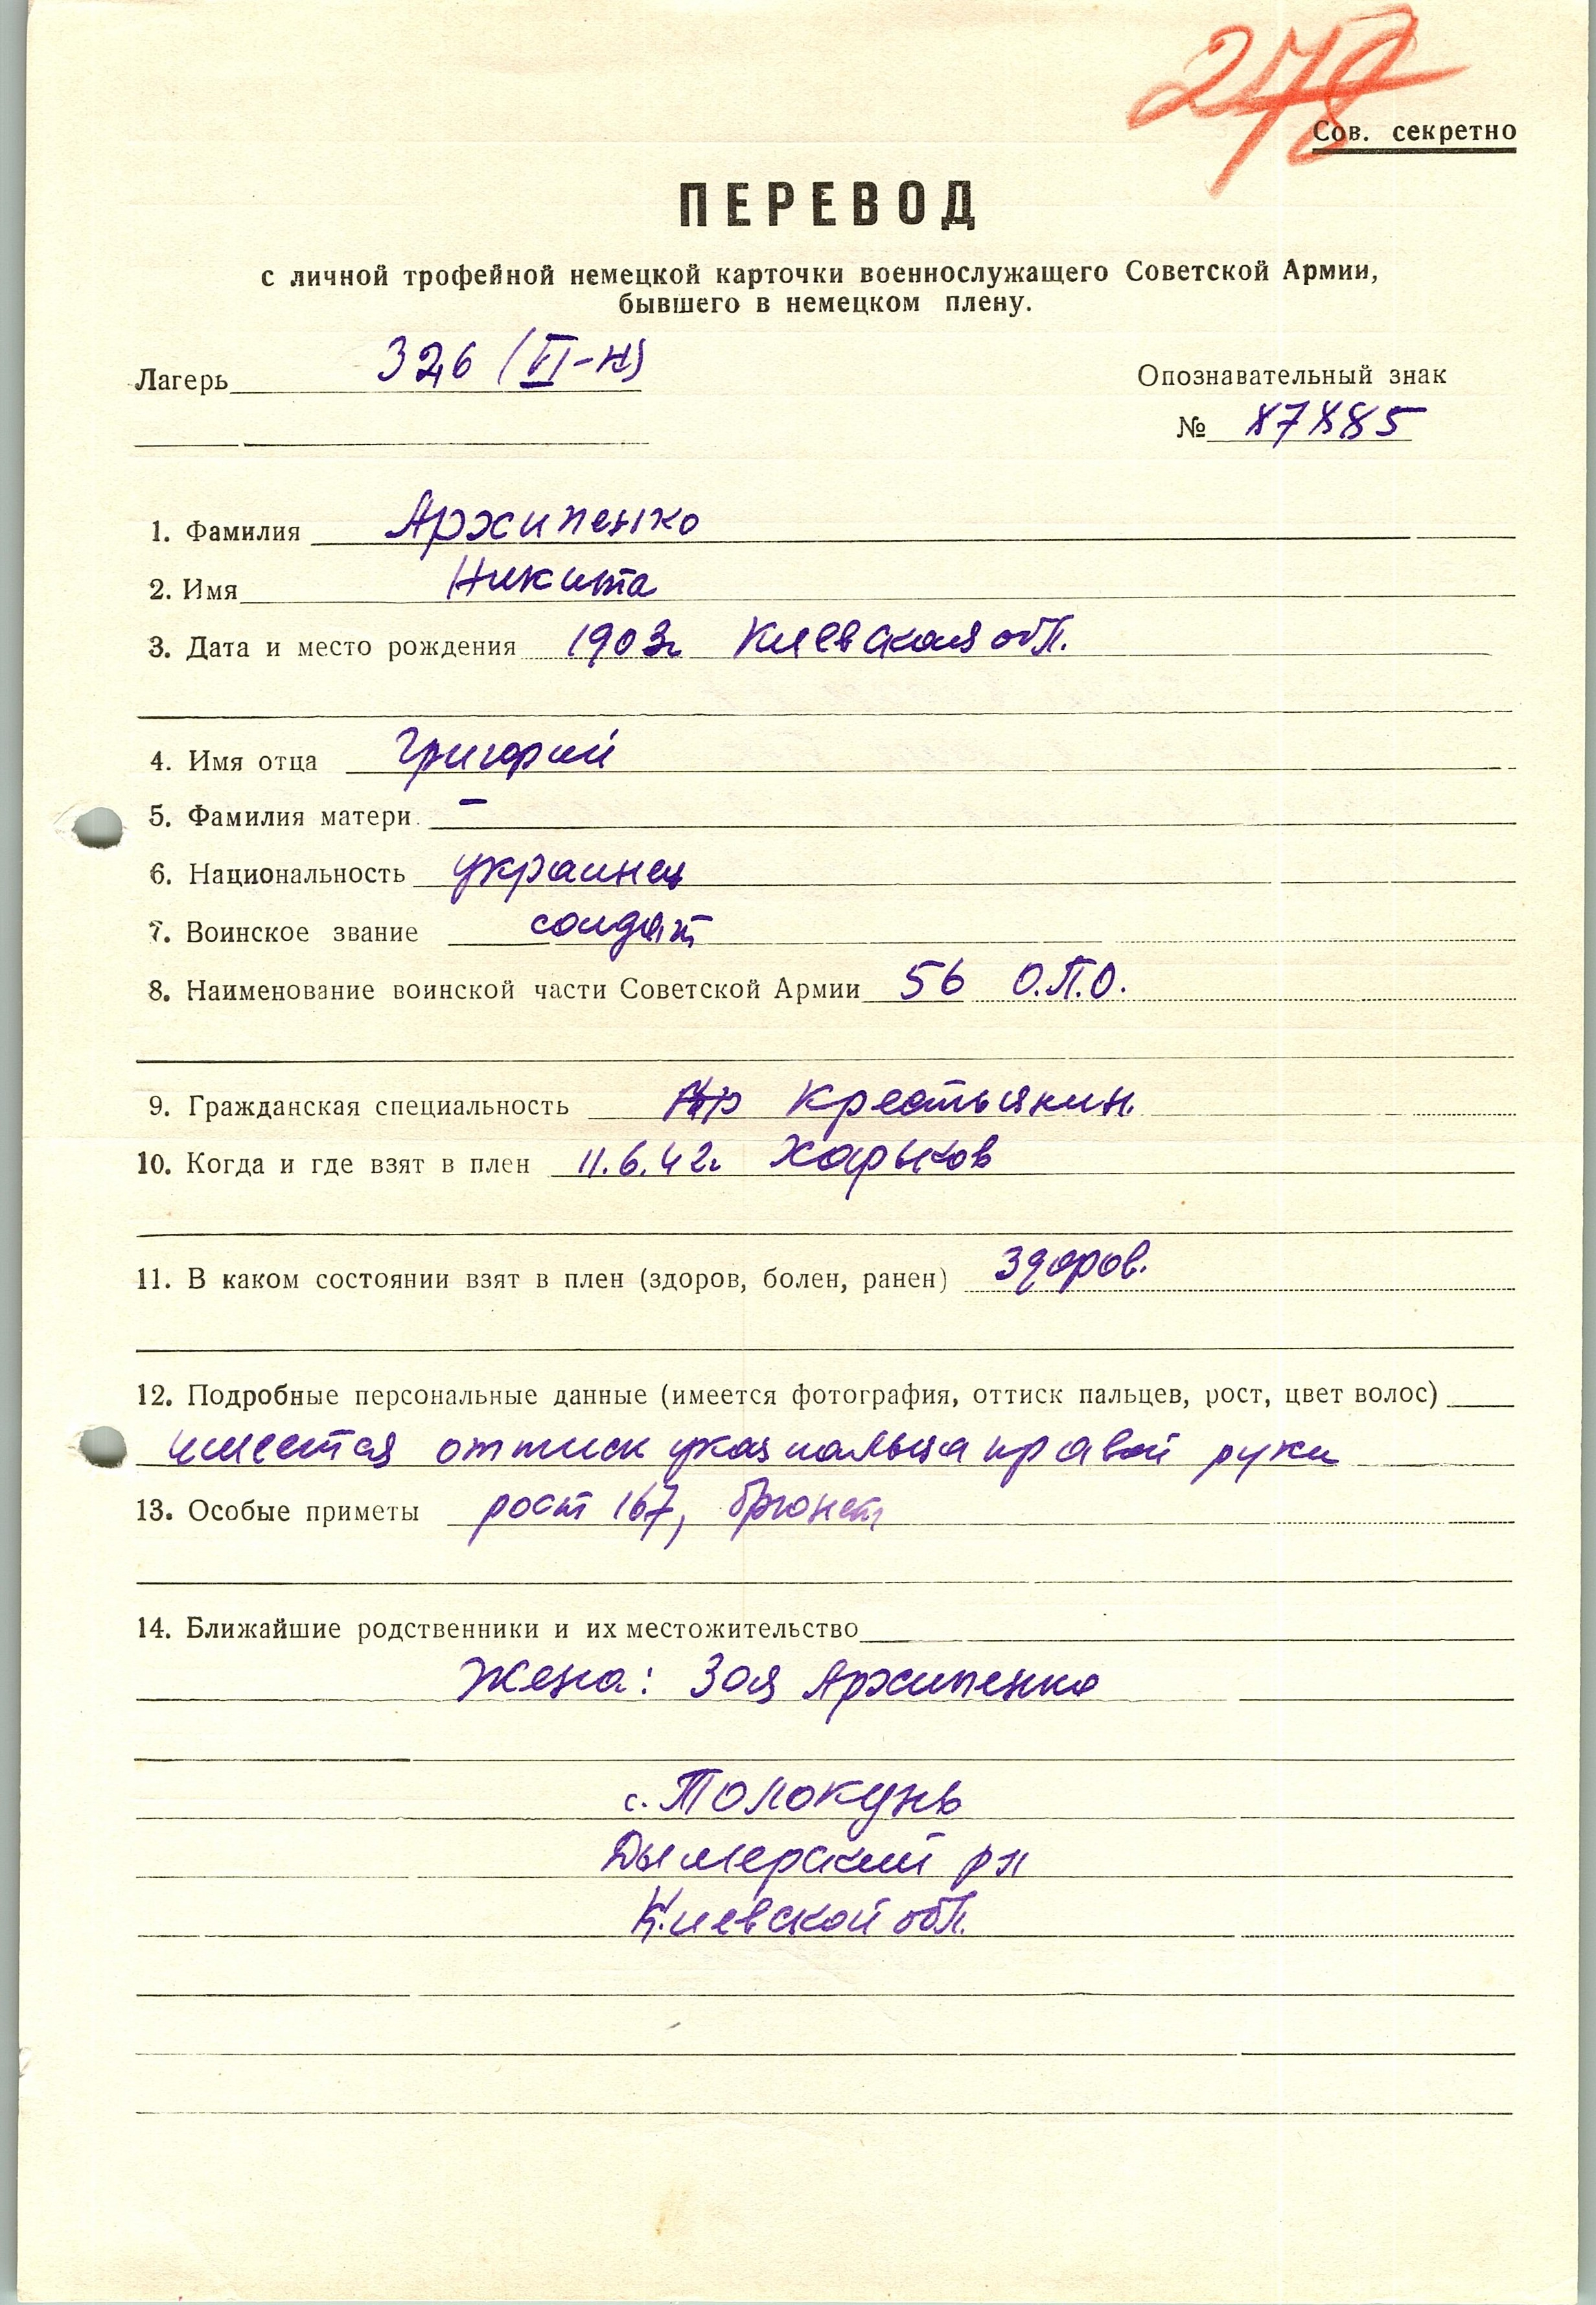 278
Сов. секретно
ПЕРЕВОД
с личной трофейной немецкой карточки военнослужащего Советской Армии,
бывшего в немецком плену.
Лагерь 326 (VI-К)
Опознавательный знак
№ 87885
1. Фамилия Архипенко
2. Имя Никита
3. Дата и место рождения 1903г Киевская обл.
4. Имя отца Григорий
5. Фамилия матери. –
6. Национальность украинец
7. Воинское звание солдат
8. Наименование воинской части Советской Армии 56 О.П.О.
9. Гражданская специальность Крестьянин.
10. Когда и где взят в плен 11.6.42г. Харьков
11. В каком состоянии взят в плен (здоров, болен, ранен) здоров.
12. Подробные персональные данные (имеется фотография, оттиск пальцев, рост, цвет волос)
имеется оттиск указ пальца правой руки
13. Особые приметы рост 167, брюнет
14. Ближайшие родственники и их местожительство
Жена: Зоя Архипенко
с. Толокунь
Дымерский рн
Киевской обл.